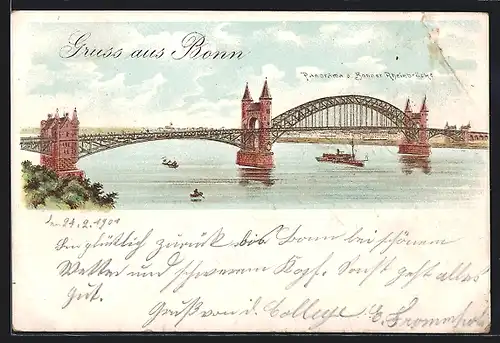 Gruss aus Bonn
Panorama d. Bonner Rheinbrücke
den 24.2.1901
Bin glücklich zurück bis Bonn bei schönem
Wetter und schwerem Kopf. Sonst geht alles
gut.
Gruß von d. College